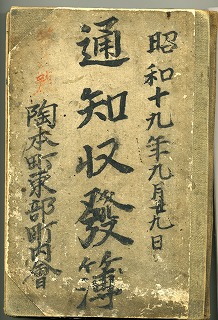 昭和十九年九月廿九日
通知収發簿
陶本町東部町內會